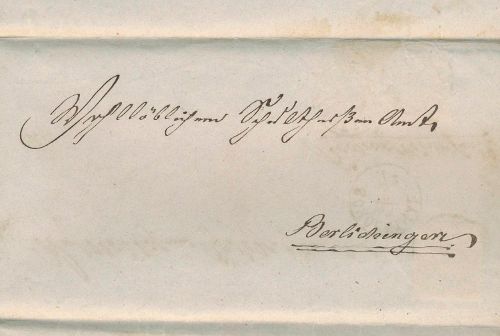 Wohllöblichem Schultheißen Amt,
Berlichingen.